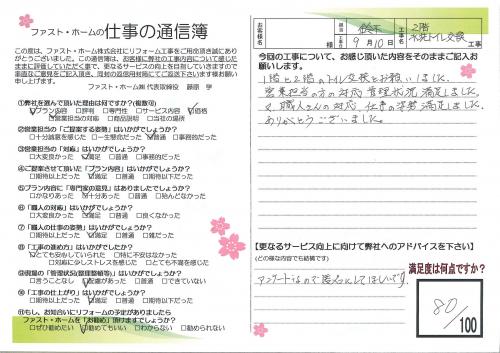 ファスト・ホームの仕事の通信簿
この度は、ファスト・ホーム株式会社にリフォーム工事をご用命頂き誠にあり
がとうございました。この通信簿は、お客様に弊社の工事内容について感じた
ままに評価していただく事で、更なるサービス向上を目指していきますので
率直なご意見をご記入頂き、同封の返信用封筒にてご返送下さいます様お願い
申し上げます。
ファスト・ホーム㈱ 代表取締役 藤原 亨
①弊社を選んで頂いた理由は何ですか？(複数可)
☑プラン内容 □評判 □専門性 □サービス内容 ☑価格
□会社の体制 □商品説明 □当社の場所
②営業担当の「ご提案する姿勢」はいかがでしょうか？
□十分誠意を感じた □一生懸命だった ☑普通 □事務的だった
③営業担当の「対応」はいかがでしょうか？
□大変良かった ☑満足 □普通 □事務的だった
④ご提案させて頂いた「プラン内容」はいかがでしょうか？
□期待以上だった ☑満足 □普通 □期待以下だった
⑤プラン内容に「専門家の意見」はありましたでしょうか？
□かなりあった ☑十分あった □普通 □殆んどなかった
⑥「職人の対応」はいかがでしょうか？
□大変良かった ☑満足 □普通 □良くなかった
⑦「職人の仕事の姿勢」はいかがでしょうか？
□期待以上だった ☑満足 □普通 □雑だった
⑧「工事の進め方」はいかがでしたか？
☑とても安心していられた □特に不安はなかった
□対応に少しストレスを感じた □とても不満を感じた
⑨現場の「管理状況(整理整頓等)」はいかがでしたか？
□言うことなし ☑配慮があった □普通 □できていない
⑩「工事の仕上がり」はいかがでしょうか？
□期待以上だった ☑満足 □普通 □期待以下だった
⑪もし、お知合いにリフォームの予定がありましたら
ファスト・ホームを「お勧め」頂けますでしょうか？
□ぜひ勧めたい ☑勧めてもいい □わからない □勧められない
お客様名 様 担当 鈴木 工事名 2階
工期 9月10日 水洗トイレ交換 工事
今回の工事について、お感じ頂いた内容をそのままご記入お願いします。
1階と2階のトイレ交換をお願いしました。
営業担当の方の対応、管理状況、満足しました。
又、職人さんの対応、仕事の姿勢満足しました。
ありがとうございました。
【更なるサービス向上に向けて弊社へのアドバイスを下さい】
(どの様な内容でも結構です)
アンケートなので匿名にしてほしいです。
満足度は何点ですか？
80/100